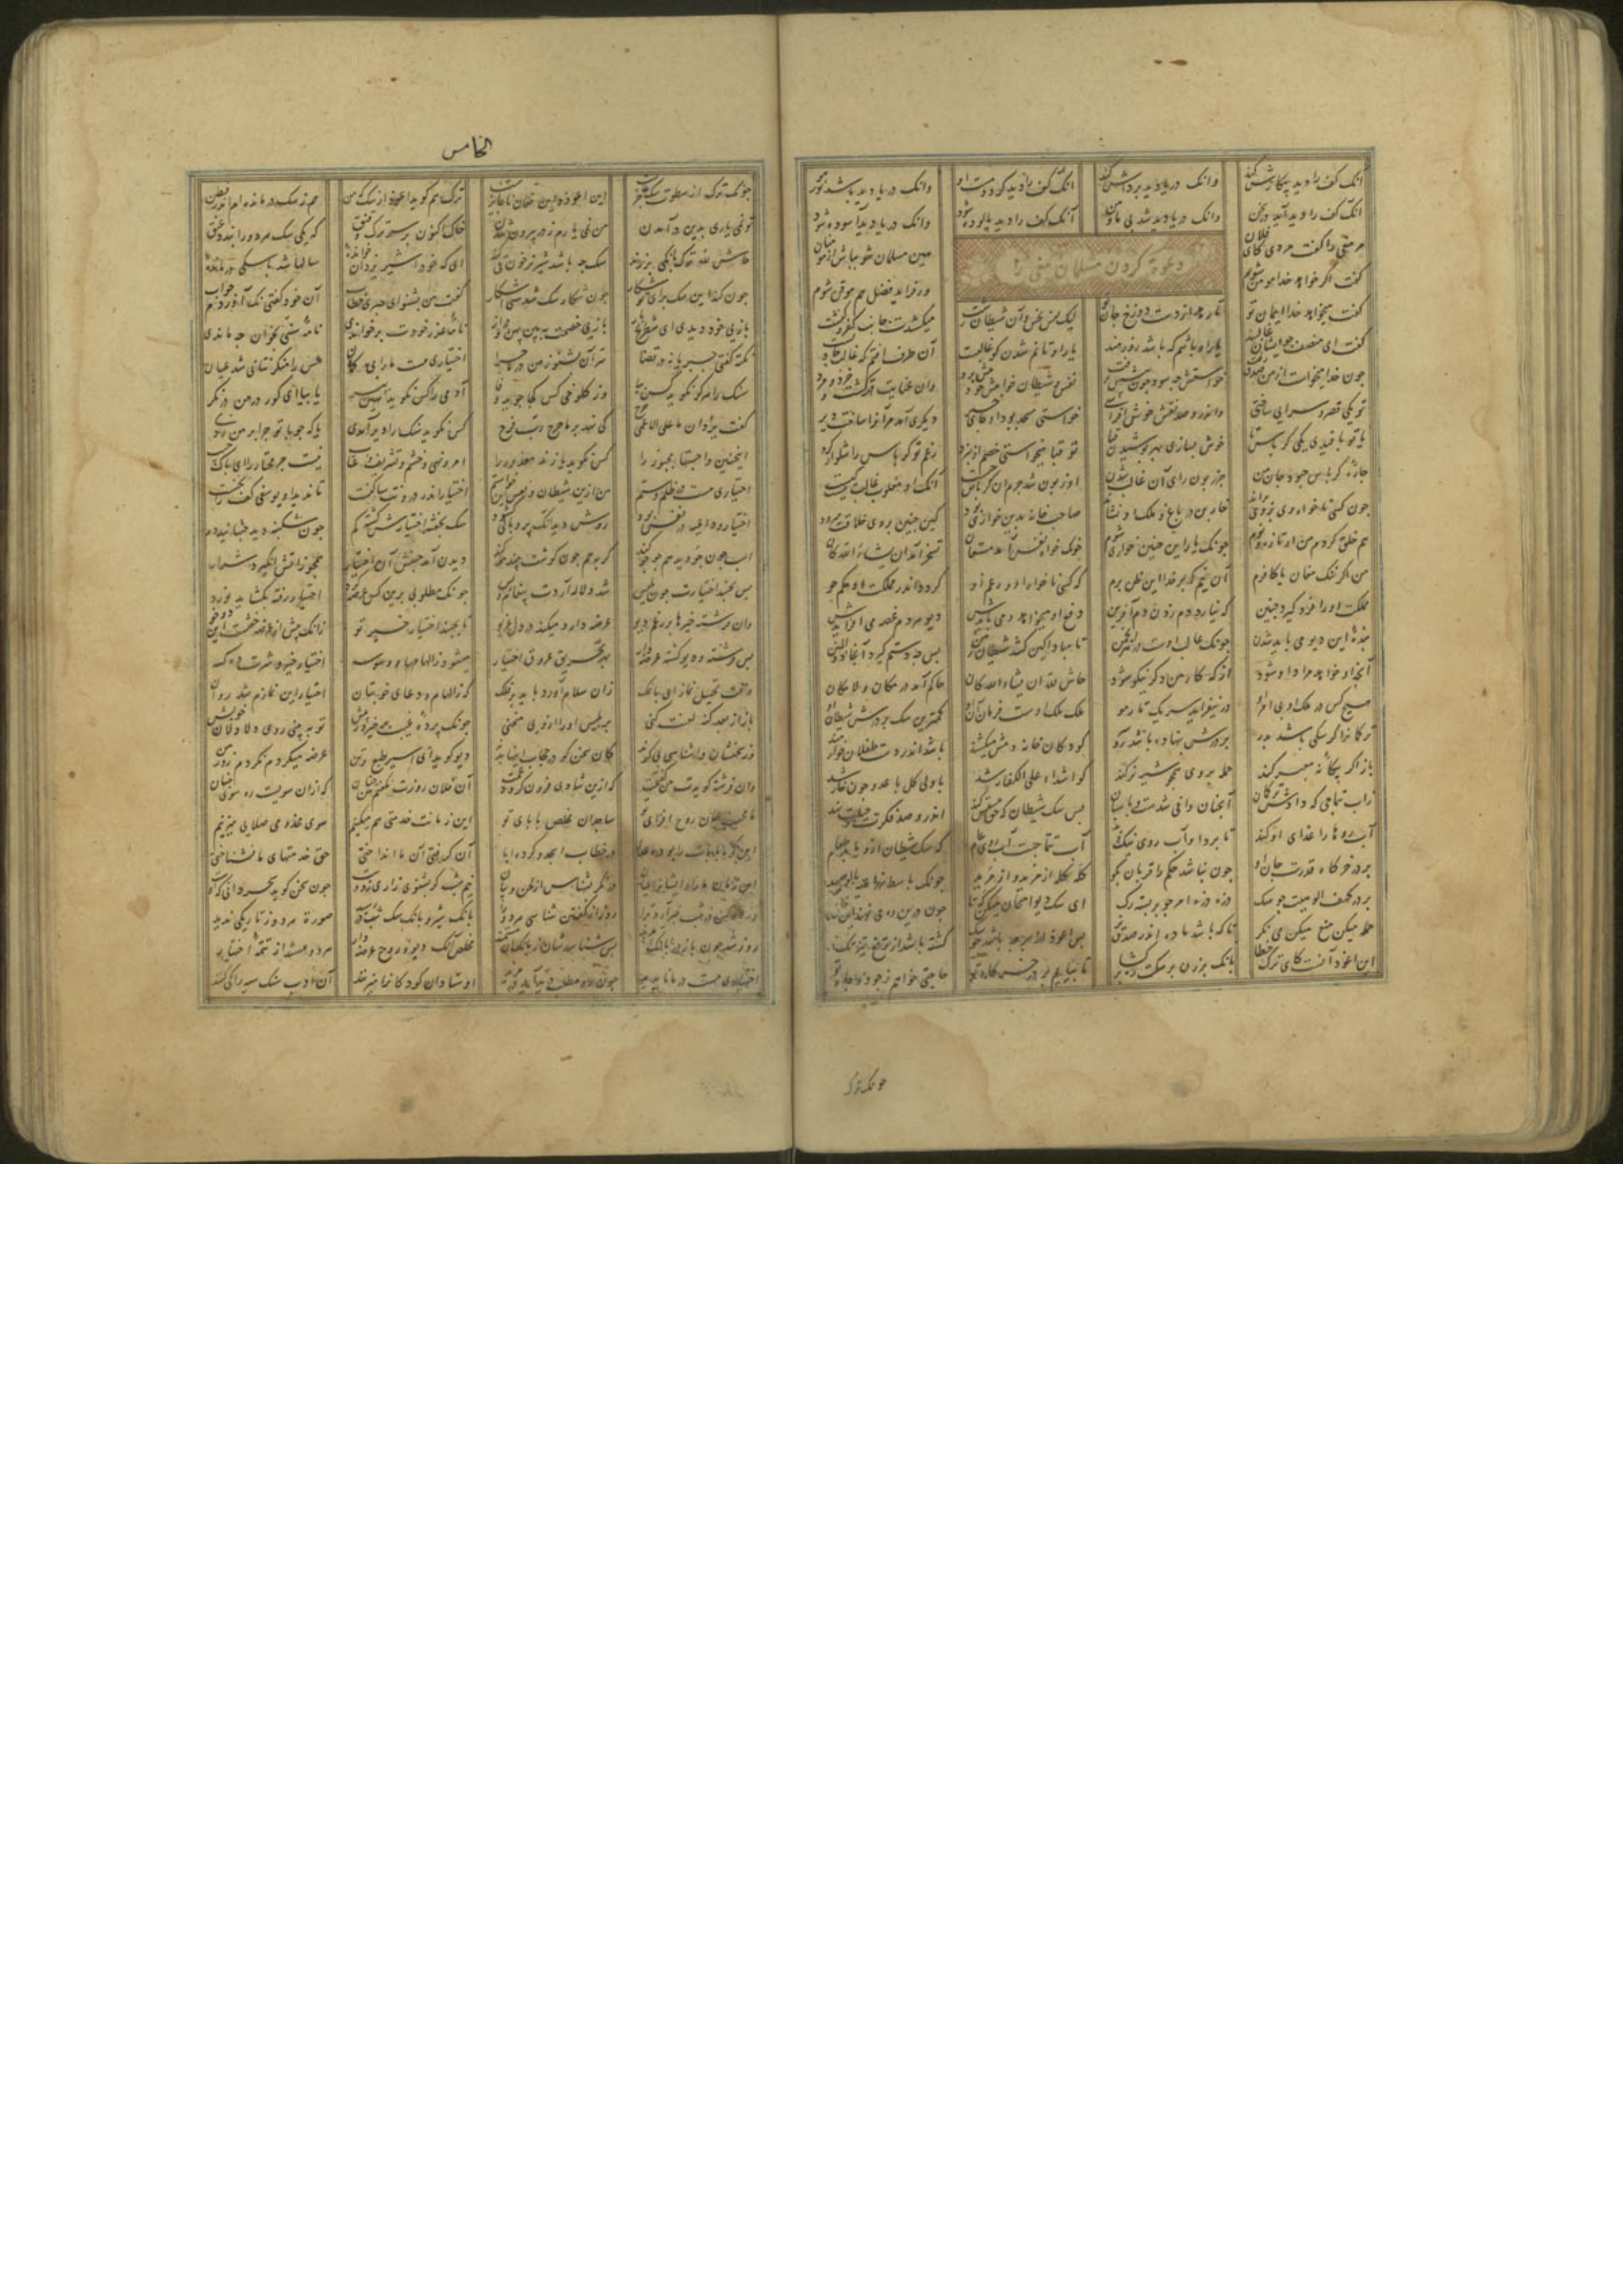 انک کف را دید کودر مست او وانک دریا دید باشد
انک کف را دید آید در سخن وانک دریا دید شد بی ما و من آنک کف را دید پالوده شود وانک دریا دید آسوده شود
دعوت کردن مسلمان مغی را
مر مغی را گفت مردی کای فلان هین مسلمان شو بباش از مومنان
گفت اگر خواهد خدا مومن شوم ور فزاید فضل هم موقن شوم
گفت میخواهد خدا ایمان تو تا رهد از دست دوزخ جان تو لیک نفس نحس و آن شیطان زشت میکشدت جانب کفر و کنشت
گفت ای منصف چو ایشان غالبند یار او باشم که باشد زورمند یار او تانم شدن کو غالبست آن طرف افتم که غالب جاذبست
چون خدا میخواست از من صدق زفت خواستش چه سود چون پیشش نرفت نفس و شیطان خواهش خود پیش برد وان عنایت قهر گشت و خرد و مرد
تو یکی قصر و سرایی ساختی واندرو صد نقش خوش افراختی خواستی مسجد بود آن جای خیر دیگری آمد مر آنرا ساخت دیر
یا تو بافیدی یکی کرباس تا خوش بسازی بهر پوشیدن قبا تو قبا میخواستی خصم از نبرد رغم تو کرباس را شلوار کرد
چاره کرباس چه بود جان من جز زبون رای آن غالب شدن او زبون شد جرم آن کرباس چیست آنک او مغلوب غالب نیست کیست
چون کسی ناخواه او بر وی براند خاربن در باغ و ملک او نشاند صاحب خانه بدین خواری بود کین چنین بر وی خلاقت میرود
هم خلق گردم من ار تازه و نوم چونک یار این چنین خواری شوم چونک خواه نفس آمد مستعان تسخر آمد ان یشاء الله کان
من اگر ننگ مغان یا کافرم آن نیم که بر خدا این ظن برم که کسی ناخواه او و رغم او گردد اندر ملکت او حکم جو
ملکت او را فرو گیرد چنین که نیارد دم زدن دم آفرین دفع او میخواهد و می بایدش دیو هر دم غصه می افزایدش
بنده این دیو می باید شدن چونک غالب اوست در هر انجمن تا مبادا کین کشد شیطان ز من پس چه دستم گیرد آنجا ذوالمنن
آنچ او خواهد مراد او شود از که کار من دگر نیکو شود حاش لله ان یشاء الله کان حاکم آمد در مکان و لامکان
هیچ کس در ملک او بی امر او در نیفزاید سر یک تار مو ملک ملک اوست فرمان آن او کمترین سگ بر درش شیطان او
ترکمانرا گر سگی باشد بدر بر درش بنهاده باشد رو و سر کودکان خانه دمش میکشند باشد اندر دست طفلان خوارمند
باز اگر بیگانه معبر کند حمله بر وی همچو شیر نر کند کو اشداء علی الکفار شد با ولی گل با عدو چون خار شد
زاب تتماجی که دادش ترکمان آنچنان وافی شدست و پاسبان پس سگ شیطان که حق هستش کند اندرو صد فکرت و حیلت تند
آب روها را غذای او کند تا برد او آب روی نیک و بد آب تتماجست آب روی عام که سگ شیطان ازو یابد طعام
بر در خرگاه قدرت جان او چون نباشد حکم را قربان بگو گله گله از مرید و از مرید چونک باسط ذراعیه بالوصید
بر در کهف الوهیت چو سگ ذره ذره امر جو بر جسته رگ ای سگ دیو امتحان میکن که تا چون درین ره می نهند این خلق پا
حمله میکن منع میکن می نگر تا که باشد ماده اندر صدق و نر پس اعوذ از بهر چه باشد چو سگ گشته باشد از ترفع تیزتگ
این اعوذ آنست کای ترک خطا بانک بزن بر سگت ره بر گشا تا بیایم بر در خرگاه تو حاجتی خواهم ز جود و جاه تو
چونک ترک
الخامس
چونک ترک از سطوت سگ عاجز است این اعوذ و این فغان ناجایز است ترک هم گوید اعوذ از سگ که من هم ز سگ در مانده ام اندر وطن
تو نمی یاری بدین در آمدن من نمی یارم ز در بیرون شدن خاک اکنون بر سر ترک و قنق که یکی سگ هر دو را بندد عنق
حاش لله ترک بانگی بر زند سگ چه باشد شیر نر خون قی کند ای که خود را شیر یزدان خوانده سالها شد با سگی درمانده
چون کند این سگ برای تو شکار چون شکار سگ شدستی آشکار گفت مومن بشنو ای جبری خطاب آن خود گفتی نک آوردم جواب
بازی خود دیدی ای شطرنج باز بازی خصمت ببین پهن و دراز نامه عذر خودت بر خواندی نامه سنی بخوان چه ماندی
نکته گفتی جبریانه در قضا سر آن بشنو ز من در ماجرا اختیاری هست ما را بی گمان حس را منکر نتانی شد عیان
سنگ را هرگز نگوید کس بیا وز کلوخی کس کجا جوید وفا آدمی را کس نگوید هین بپر یا بیا ای کور در من در نگر
گفت یزدان ما علی الاعمی حرج کی نهد بر ما حرج رب الفرج کس نگوید سنگ را دیر آمدی یا که چوبا تو چرا بر من زدی
اینچنین واجستها مجبور را کس نگوید یا زند معذور را امر و نهی و خشم و تشریف و عتاب نیست جز مختار را ای پاک جیب
اختیاری هست در ظلم و ستم من ازین شیطان و نفس این خواستم اختیار اندر درونت ساکنست تا ندید او یوسفی کف را نخست
اختیار و داعیه در نفس بود روش دید آنگه پر و بالی گشود سگ بخفته اختیارش گشته گم چون شکنبه دید جنبانید دم
اسب هم حو حو کند چون دید جو گربه هم چون گوشت جنبد مو کند دیدن آمد جنبش آن اختیار همچو نفخی ز آتش انگیزد شرار
پس بجنبد اختیارت چون بلیس شد دلاله آردت پیغام ویس چونک مطلوبی برین کس عرضه کرد اختیار رفته بگشاید نورد
وان فرشته خیرها بر رغم دیو عرضه دارد میکند در دل غریو تا بجنبد اختیار خیر تو زانک پیش از عرضه خفتست این دو خو
پس فرشته و دیو گشته عرضه دار بهر تحریک عروق اختیار میشود ز الهامها و وسوسه اختیار خیر و شرت ده کسه
وقت تحلیل نماز ای بانمک زان سلام آورد باید بر ملک که ز الهام و دعای خوبتان اختیار این نمازم شد روان
باز از بعد گنه لعنت کنی بر بلیس ایرا ازویی منحنی چونک پرده غیب برخیزد ز پیش تو ببینی روی دلالان خویش
وز سخنشان واشناسی بی گزند کان سخن گو در حجاب اینها بدند دیو گوید ای اسیر طبع و تن عرضه میکردم نکردم زور من
وان فرشته گویدت من گفتمت که ازین شادی فزون گردد غمت آن فلان روزت نگفتم من چنان که ازان سویست ره سوی جنان
ما محب جان روح افزای تو ساجدان مخلص بابای تو این زمانت خدمتی هم میکنیم سوی مخدومی صلایت میزنیم
آن گرفتی آن ما انداختی حق خدمتهای ما نشناختی
این زمان ما را و ایشان را عیان در نگر بشناس از لحن و بیان نیم شب گر بشنوی رازی ز دوست چون سخن گوید سحر دانی که اوست
روز از گفتن شناسی هر دو را بانگ شیر و بانگ سگ شب در رسید صورت هر دو ز تاریکی ندید
روز شد چون باز در بانگ آمدند پس شناسدشان ز بانگ آن هوشمند مخلص آنک دیو و روح عرضه دار هر دو هستند از تتمه اختیار
اختیاری هست در ما ناپدید چون دو مطلب دید آید در مزید اوستادان کودکان را میزنند آن ادب سنگ سیه را کی کنند